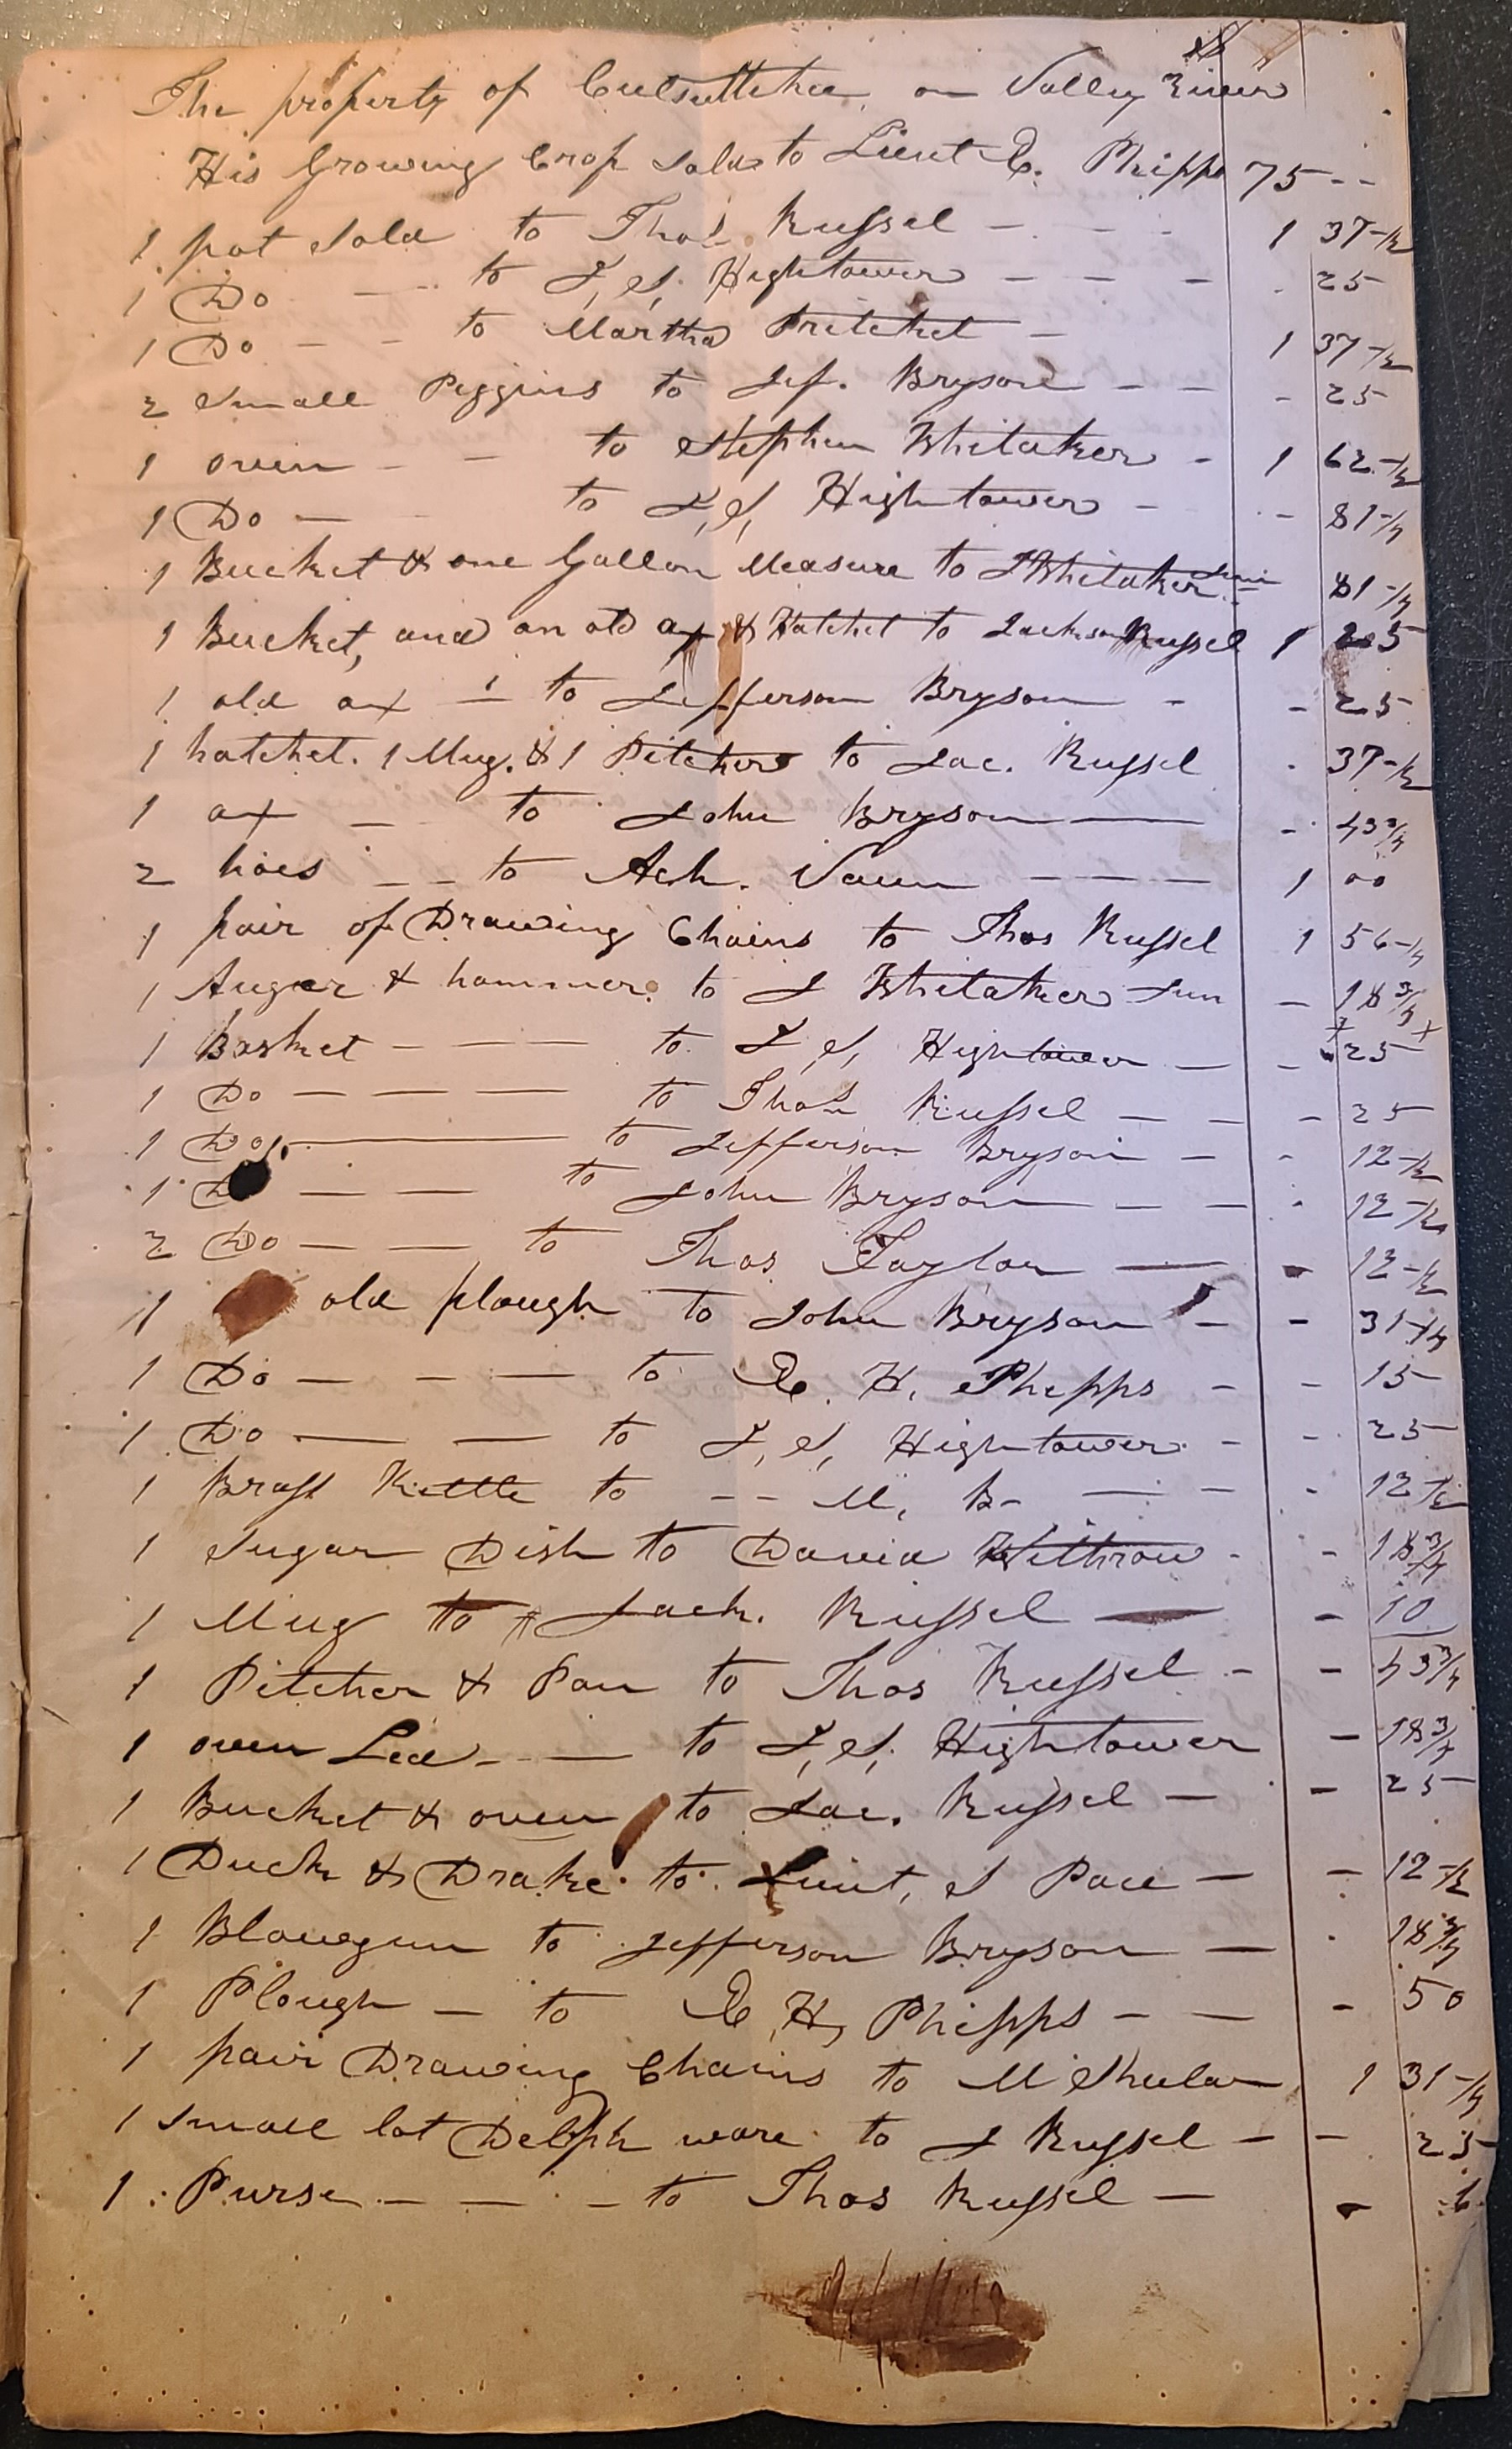 The property of Culsuttehee on Valley River
His Growing Crop sold to Lieut E. Phipps 75 - -
1 pot sold to Thos Russel - - - 1 37-1/2
1 Do - - to J, S, Hightower - - - . 25
1 Do - - to Martha Pritchet - 1 37-1/2
2 Small Piggins to Jef. Bryson - - - 25
1 oven - - to Stephen Whitaker - 1 62-1/2
1 Do - to J, S, Hightower - - - 81-1/4
1 Bucket & one Gallon Measure to J Whitaker Juni - 81-1/4
1 Bucket, and an old ax & Hatchet to Jackson Russel 1 25
1 old ax - to Jefferson Bryson - - 25
1 hatchet. 1 Mug. & 1 Pitcher to Jac. Russel . 37-1/2
1 ax - to John Bryson - - 43 3/4
2 hoes - - to Ach. Vaun - - - 1 00
1 pair of Drawing Chains to Thos Russel 1 56-1/4
1 Auger & hammer. to J Whitaker Jun - 18 3/4
1 Basket - - - to J, S, Hightower - - 25
1 Do - - - - to Thos Russel - - - 25
1 Do, - to Jefferson Bryson - - 12-1/2
1 D - - to John Bryson - - - . 12-1/2
2 Do - - to Thos Taylor - - 12-1/2
1 old plough to John Bryson - - 31-1/4
1 Do - - - to E. H. Phipps - - 15
1 Do - - to J, S, Hightower - - 25
1 Brass Kettle to - - M, B- - - . 12-1/2
1 Sugar Dish to David Withrow - - 18 3/4
1 Mug to Jack. Russel - - 10
1 Pitcher & Pan to Thos Russel - - 43 3/4
1 oven Led - - to J, S, Hightower - 18 3/4
1 Bucket & oven to Jac. Russel - - 25
1 Duck & Drake to Lieut, S Pace - - 12-1/2
1 Blowgun to Jefferson Bryson - . 18 3/4
1 Plough - to E, H, Phipps - - - 50
1 pair Drawing Chains to M Shular 1 31-1/4
1 small lot Delph ware to J Russel - - 25
1 Purse - - - to Thos Russel - - 6